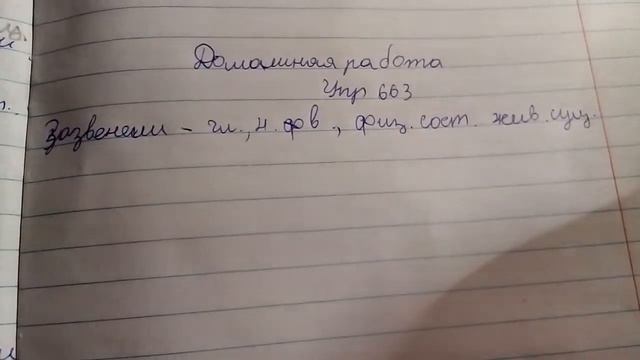 Домашняя работа
Упр 663
Зазвенели - гл., н. ф в., физ. сост. жив. сущ.